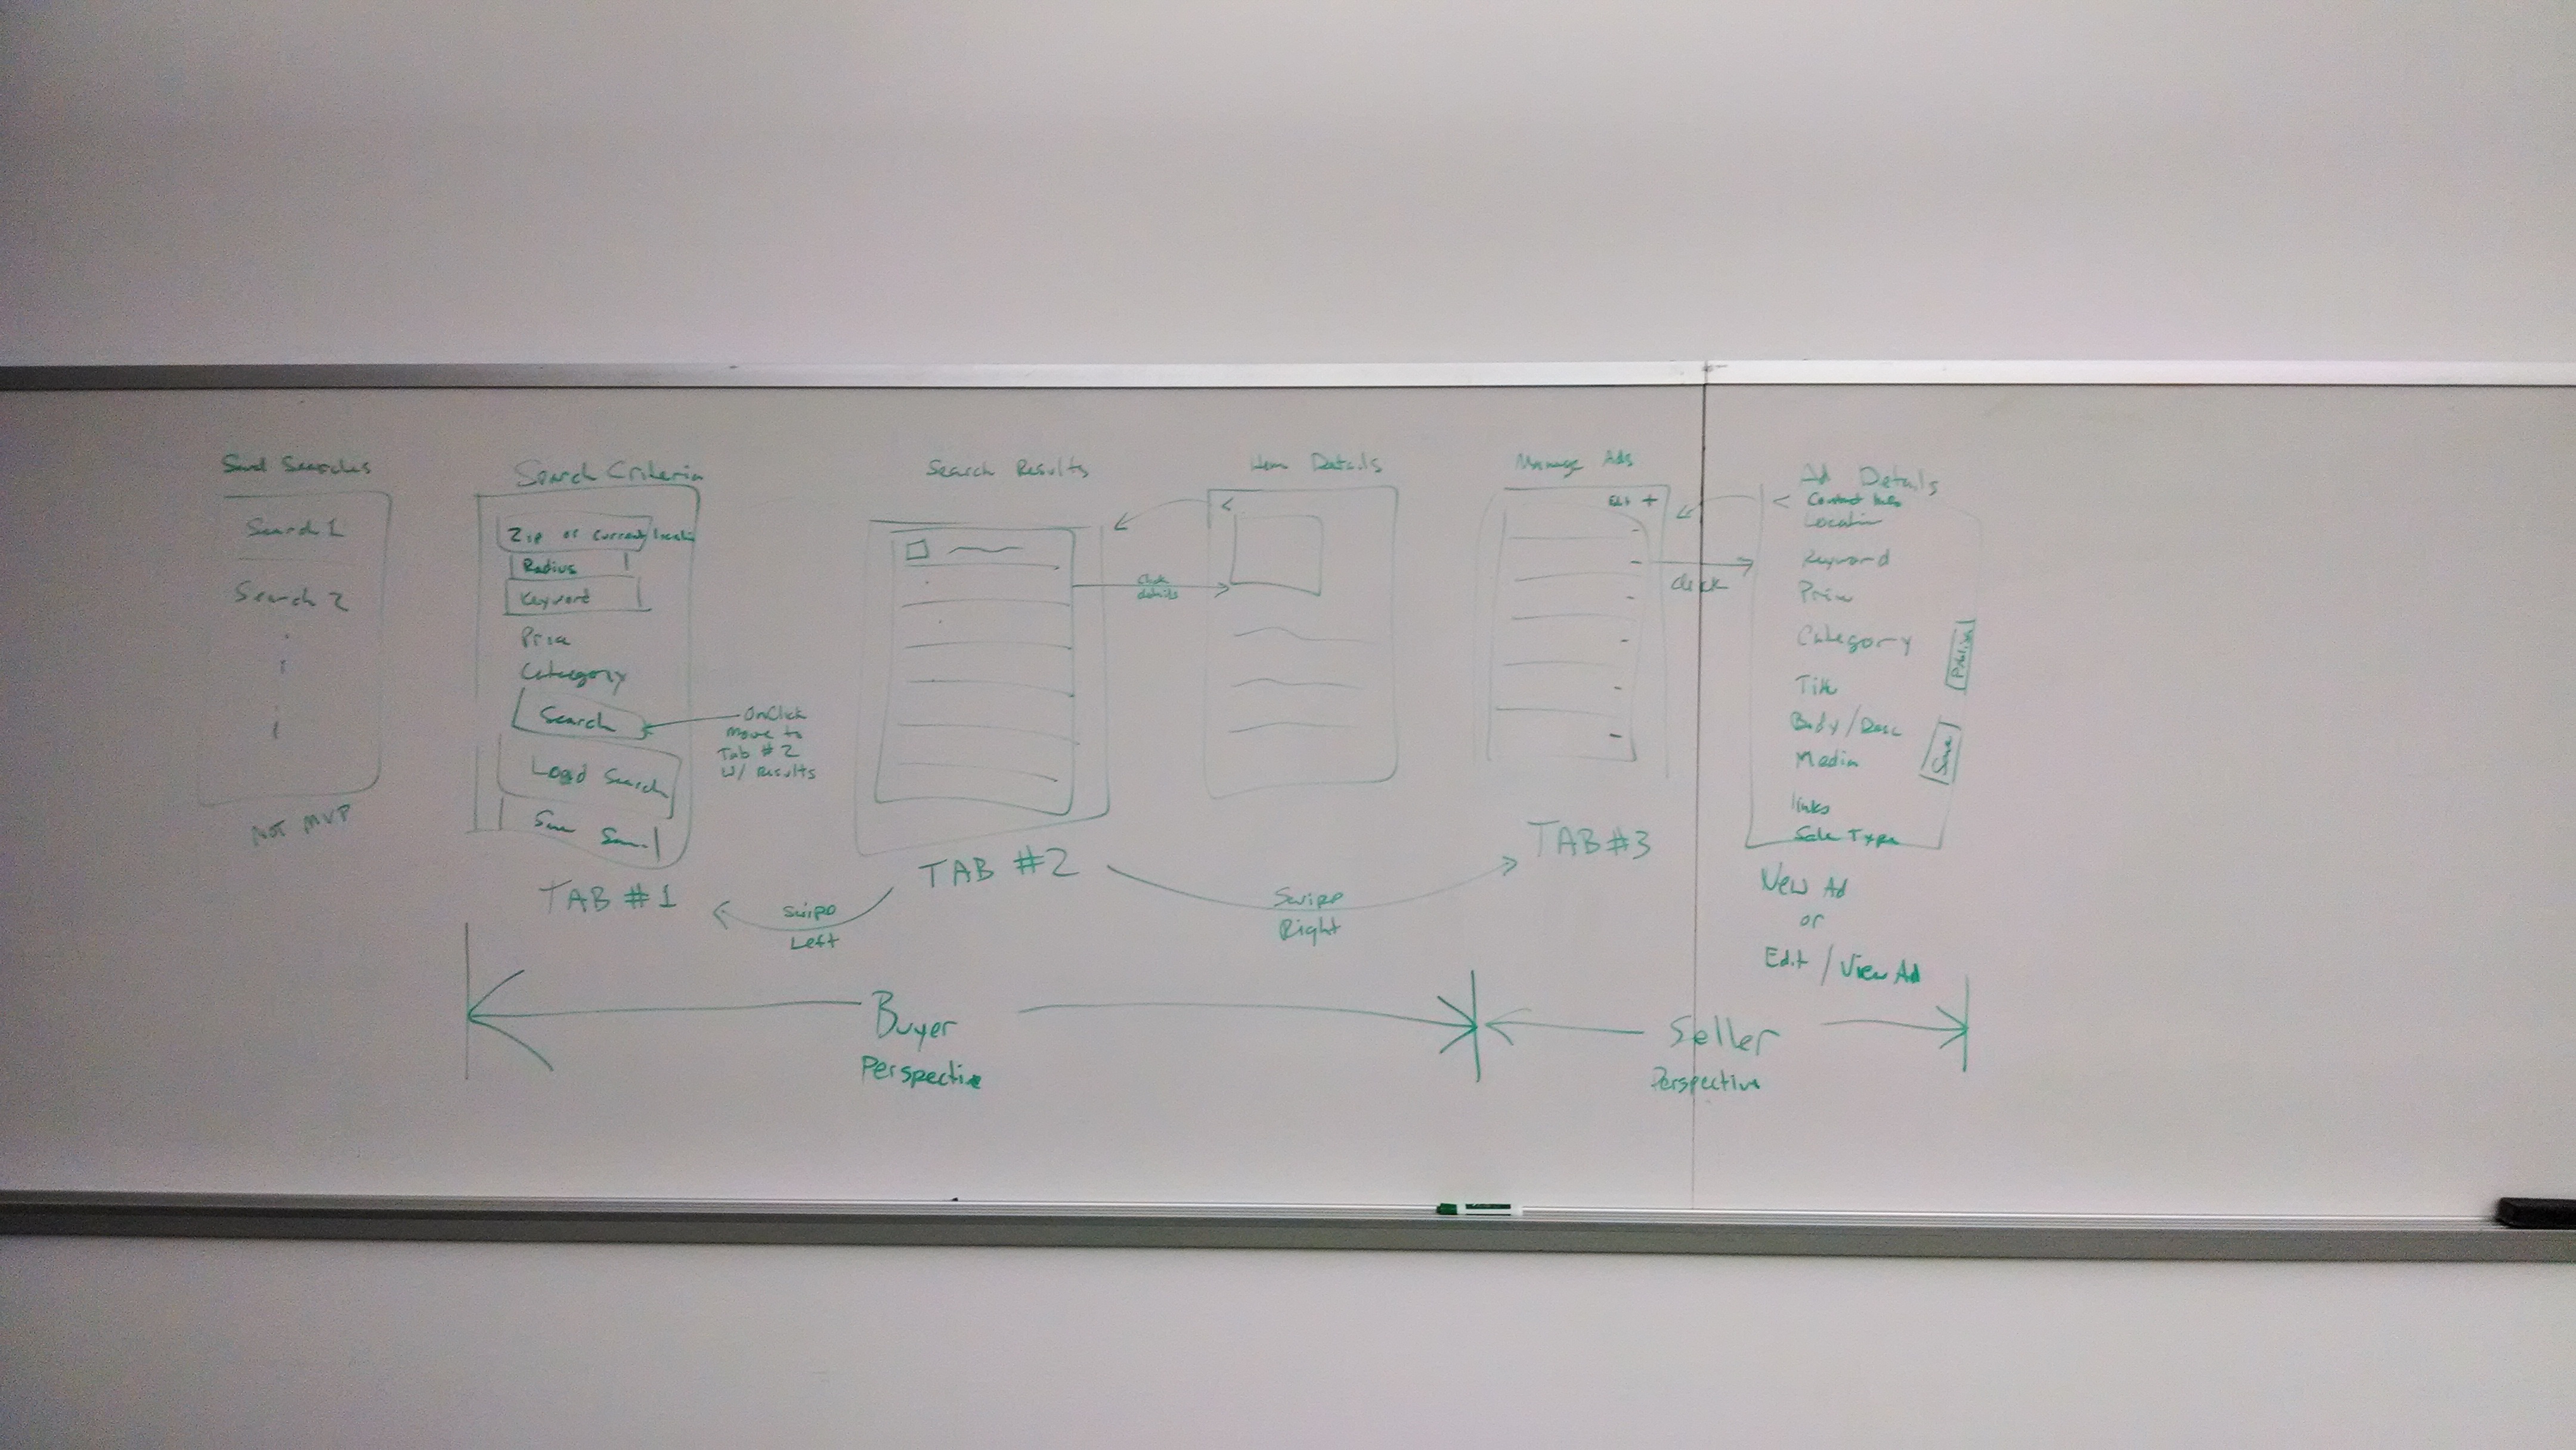 Saved Searches
Search 1
Search 2
NOT MVP
Search Criteria
Zip or current location
Radius
Keyword
Price
Category
Search
Load Search
Save
TAB #1
OnClick
move to
Tab #2
w/ Results
Search Results
Click
details
TAB #2
Swipe
Left
Swipe
Right
Item Details
<
Manage Ads
Edit +
Click
TAB #3
Ad Details
< Contact Info
Location
Keyword
Price
Category
Title
Body/Desc
Media
links
Sale Type
Publish
Save
New Ad
or
Edit / View Ad
Buyer
Perspective
Seller
Perspective